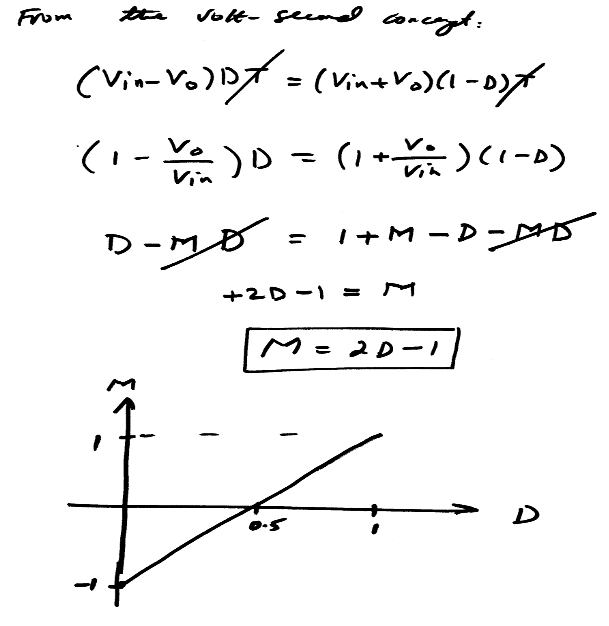 From the volt-second concept:
(Vin-Vo)DT = (Vin+Vo)(1-D)T
(1 - Vo/Vin)D = (1 + Vo/Vin)(1-D)
D - MD = 1 + M - D - MD
+2D-1 = M
M = 2D-1
M
1
0.5
1
D
-1